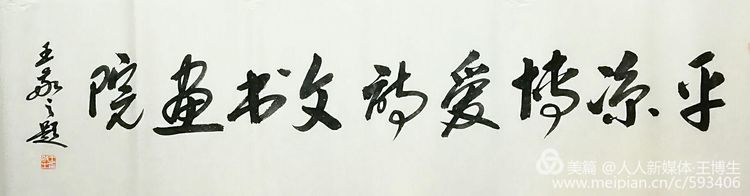 平凉博爱诗文书画院
王之题
美篇 @人人新媒体·王博生
www.meipian.cn/c/593406